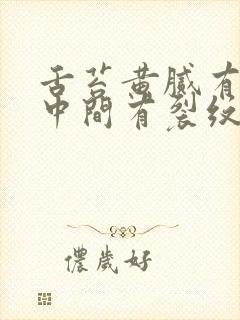 舌苔黄腻有
中間有裂纹
儂歲好